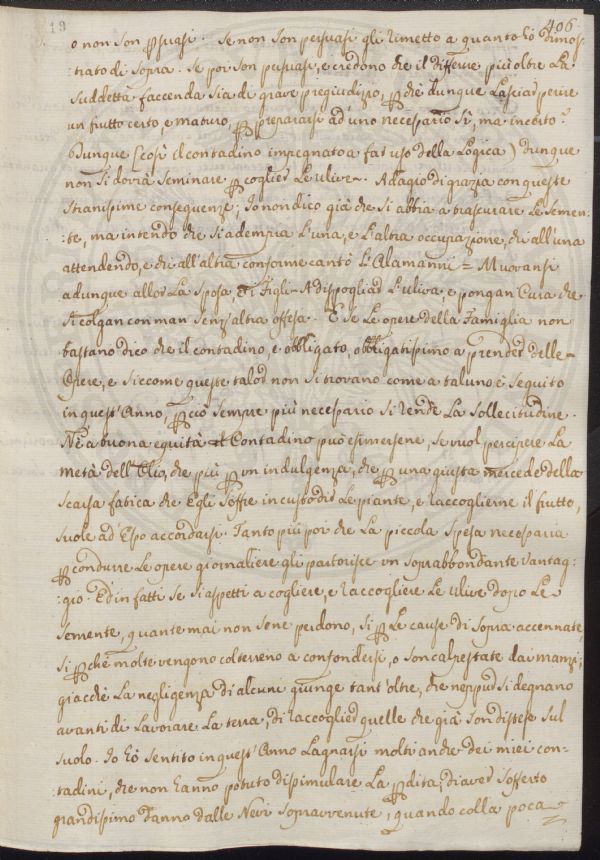 19
406.
o non son psuasi. Se non son persuasi gli rimetto a quanto hò dimos:
:trato di sopra. Se poi son persuasi, e credono che il differire più oltre La
suddetta faccenda sia di grave pregiudizio, pchè dunque Lasciar perire
un frutto certo, e maturo, p prepararsi ad uno necessario sì, ma incerto?
Dunque (così il contadino impegnato a far uso della Logica) dunque
non si dovrà seminare p coglier L'ulive. Adagio di grazia con queste
stranissime conseguenze; Io non dico già che si abbia a trascurare Le semen-
:te, ma intendo che si adempia L'una, e L'altra occupazione, chi all'una
attendendo, e chi all'altra conforme cantò L'Alamanni = Muovansi
adunque allor La sposa, e i Figli - A dispogliar L'uliva, e pongan Cura che
si colgan con man senz'altra offesa. E se Le opere della Famiglia non
bastano dico che il contadino, e obbligato, obbligatissimo a prender delle
Opere, e siccome queste talor non si trovano come a taluno è seguito
in quest'Anno, pciò sempre più necessario si rende La sollecitudine.
Nè a buona equità il Contadino può esimersene, se vuol percipere La
metà dell'Olio, che più p un indulgenza, che p una giusta mercede della
scarsa fatica che Egli soffre in custodir Le piante, e raccoglierne il frutto,
suole ad Esso accordarsi. Tanto più poi che La piccola spesa necessaria
p condurre Le opere giornaliere gli partorisce un soprabbondante vantag:
:gio. Ed in fatti se si aspetti a cogliere, e raccogliere Le Ulive dopo Le
semente, quante mai non se ne perdono, sì p Le cause di sopra accennate,
sì pchè molte vengono col terreno a confondersi, o son calpestate dai manzi;
giacchè La negligenza di alcuni giunge tant'oltre, che neppur si degnano
avanti di Lavorare La terra, di raccoglier quelle che già son distese sul
suolo. Io hò sentito in quest'Anno Lagnarsi molti anche dei miei con-
:tadini, che non hanno potuto dissimulare La pdita, di aver sofferto
grandissimo danno dalle Nevi sopravvenute, quando colla poca